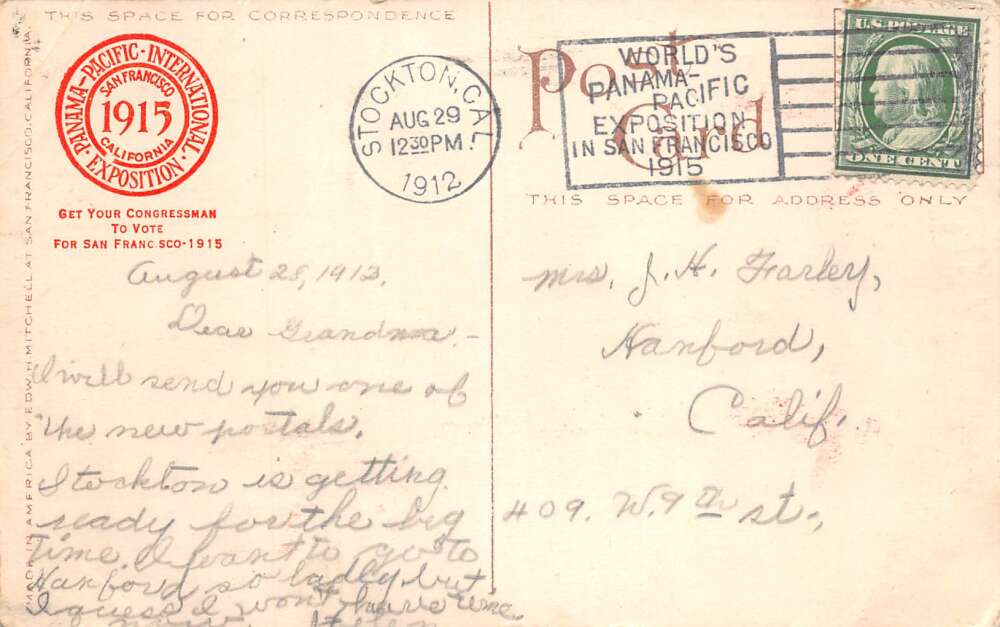 THIS SPACE FOR CORRESPONDENCE
PANAMA-PACIFIC-INTERNATIONAL
SAN FRANCISCO
1915
CALIFORNIA
EXPOSITION
GET YOUR CONGRESSMAN
TO VOTE
FOR SAN FRANC SCO-1915
MADE IN AMERICA BY EDW. H. MITCHELL AT SAN FRANCISCO, CALIFORNIA.
August 28, 1912.
Dear Grandma.-
I will send you one of
the new postals.
Stockton is getting
ready for the big
time. I want to go to
Hanford so badly but
I guess I won't have time
now. Helen
STOCKTON, CAL.
AUG 29
12 30 PM
1912
Post Card
WORLD'S
PANAMA-
PACIFIC
EXPOSITION
IN SAN FRANCISCO
1915
U.S. POSTAGE
ONE CENT
THIS SPACE FOR ADDRESS ONLY
Mrs. J. H. Farley,
Hanford,
Calif.
#09. W. 9th st.,